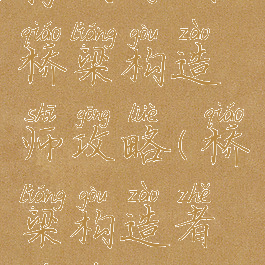 qiáo liáng gòu zào
桥梁构造
shī gōng lüè qiáo
师攻略(桥
liáng gòu zào zhě
梁构造者